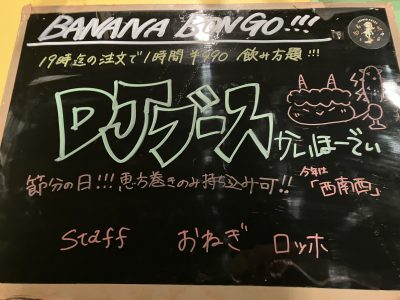 BANANA BONGO!!!
19時迄の注文で1時間¥990 飲み方題!!!
DJブース
かいほーでぃ
節分の日!!!恵方巻きのみ持ち込み可!!
今年は
「西南西」
Staff おねぎ ロッホ